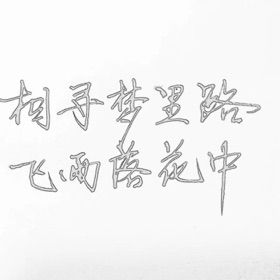 相寻梦里路
飞雨落花中